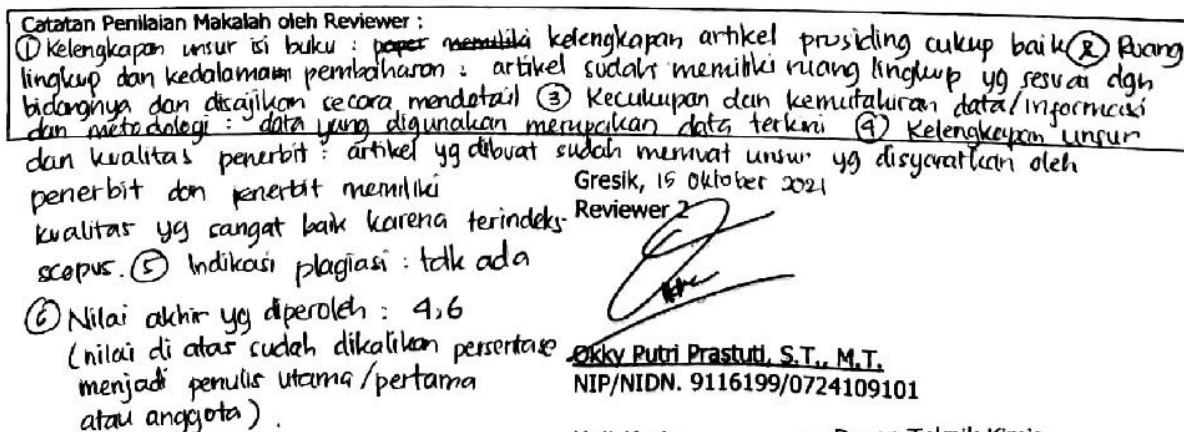 Catatan Penilaian Makalah oleh Reviewer :
① Kelengkapan unsur isi buku : paper memiliki kelengkapan artikel prosiding cukup baik ② Ruang
lingkup dan kedalaman pembahasan : artikel sudah memiliki ruang lingkup yg sesuai dgn
bidangnya dan disajikan secara mendetail ③ Kecukupan dan kemutahiran data/informasi
dan metodologi : data yang digunakan merupakan data terkini ④ Kelengkapan unsur
dan kualitas penerbit : artikel yg dibuat sudah memuat unsur yg disyaratkan oleh
penerbit dan penerbit memiliki
kualitas yg sangat baik karena terindeks
scopus. ⑤ Indikasi plagiasi : tdk ada
⑥ Nilai akhir yg diperoleh : 4,6
(nilai di atas sudah dikalikan persentase
menjadi penulis utama/pertama
atau anggota).
Gresik, 15 Oktober 2021
Reviewer 2
Okky Putri Prastuti, S.T., M.T.
NIP/NIDN. 9116199/0724109101
Teknik Kimia